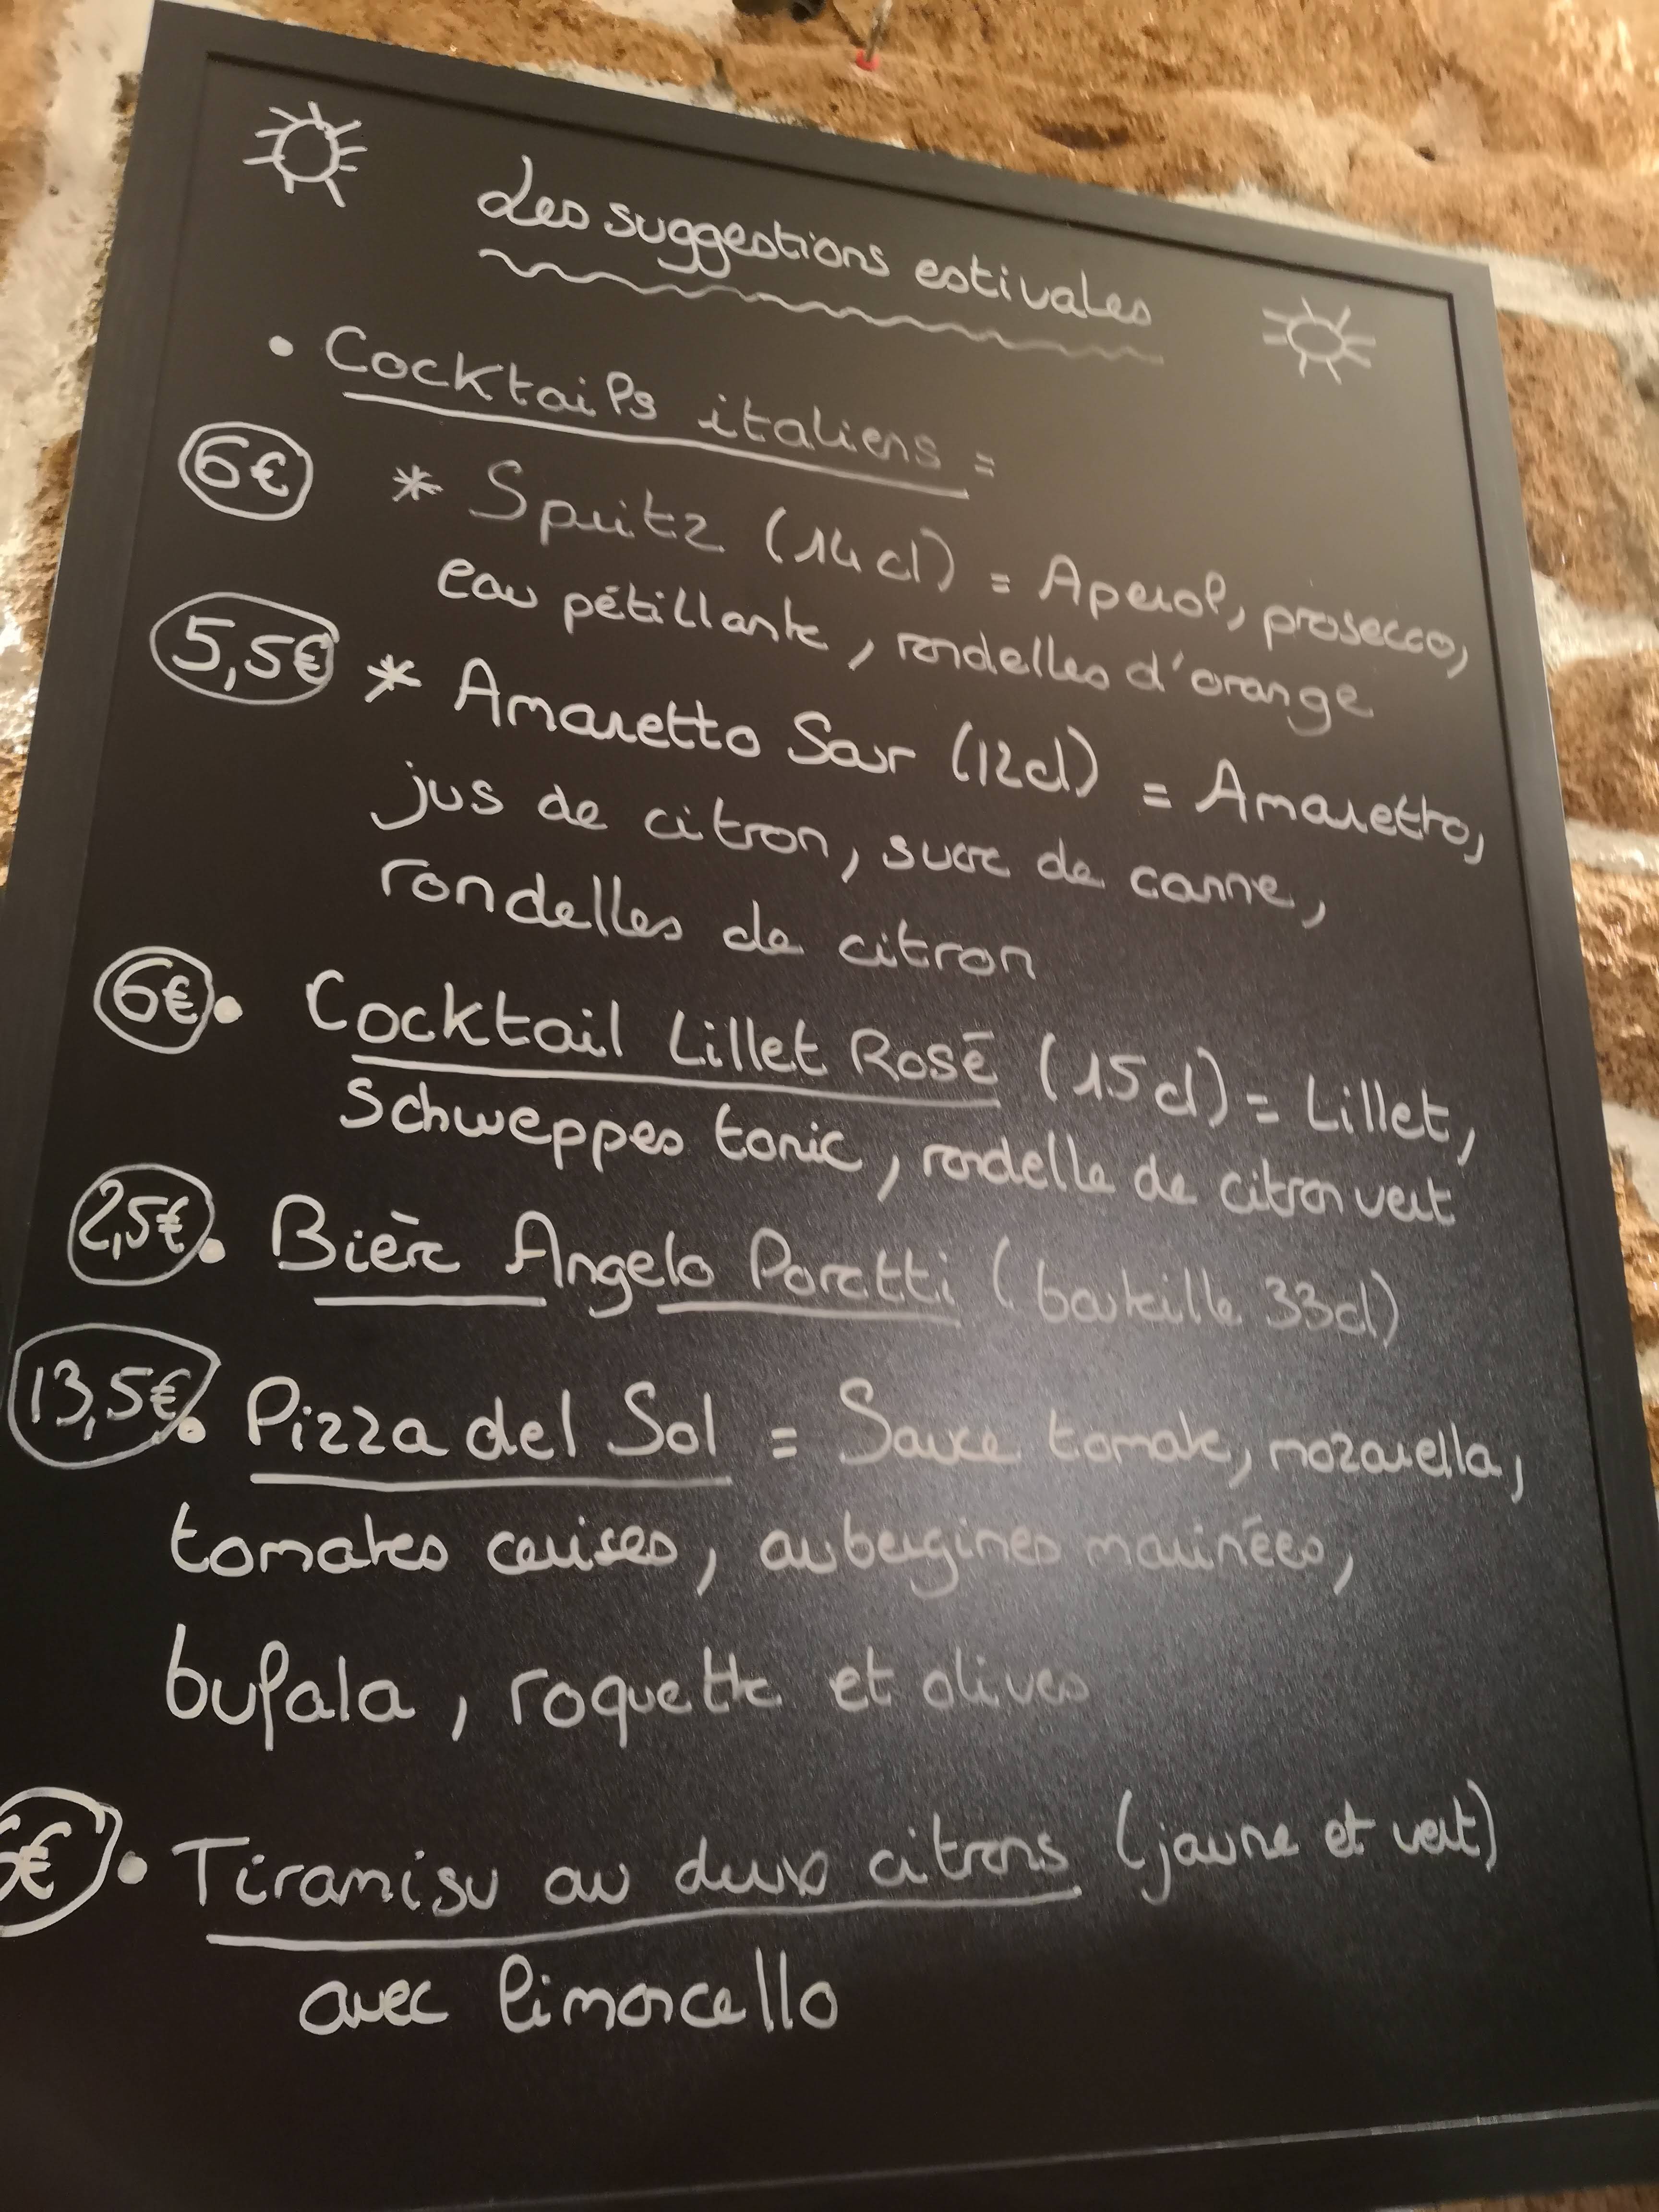 Les suggestions estivales
• Cocktails italiens =
6€ * Spritz (14cl) = Aperol, prosecco,
eau pétillante, rondelles d'orange
5,5€ * Amaretto Sour (12cl) = Amaretto,
jus de citron, sucre de canne,
rondelles de citron
6€ • Cocktail Lillet Rosé (15cl) = Lillet,
Schweppes tonic, rondelle de citron vert
2,5€ • Bière Angelo Poretti (bouteille 33cl)
13,5€ • Pizza del Sol = Sauce tomate, mozarella,
tomates cerises, aubergines marinées,
bufala, roquette et olives
€ • Tiramisu au deux citrons (jaune et vert)
avec limoncello